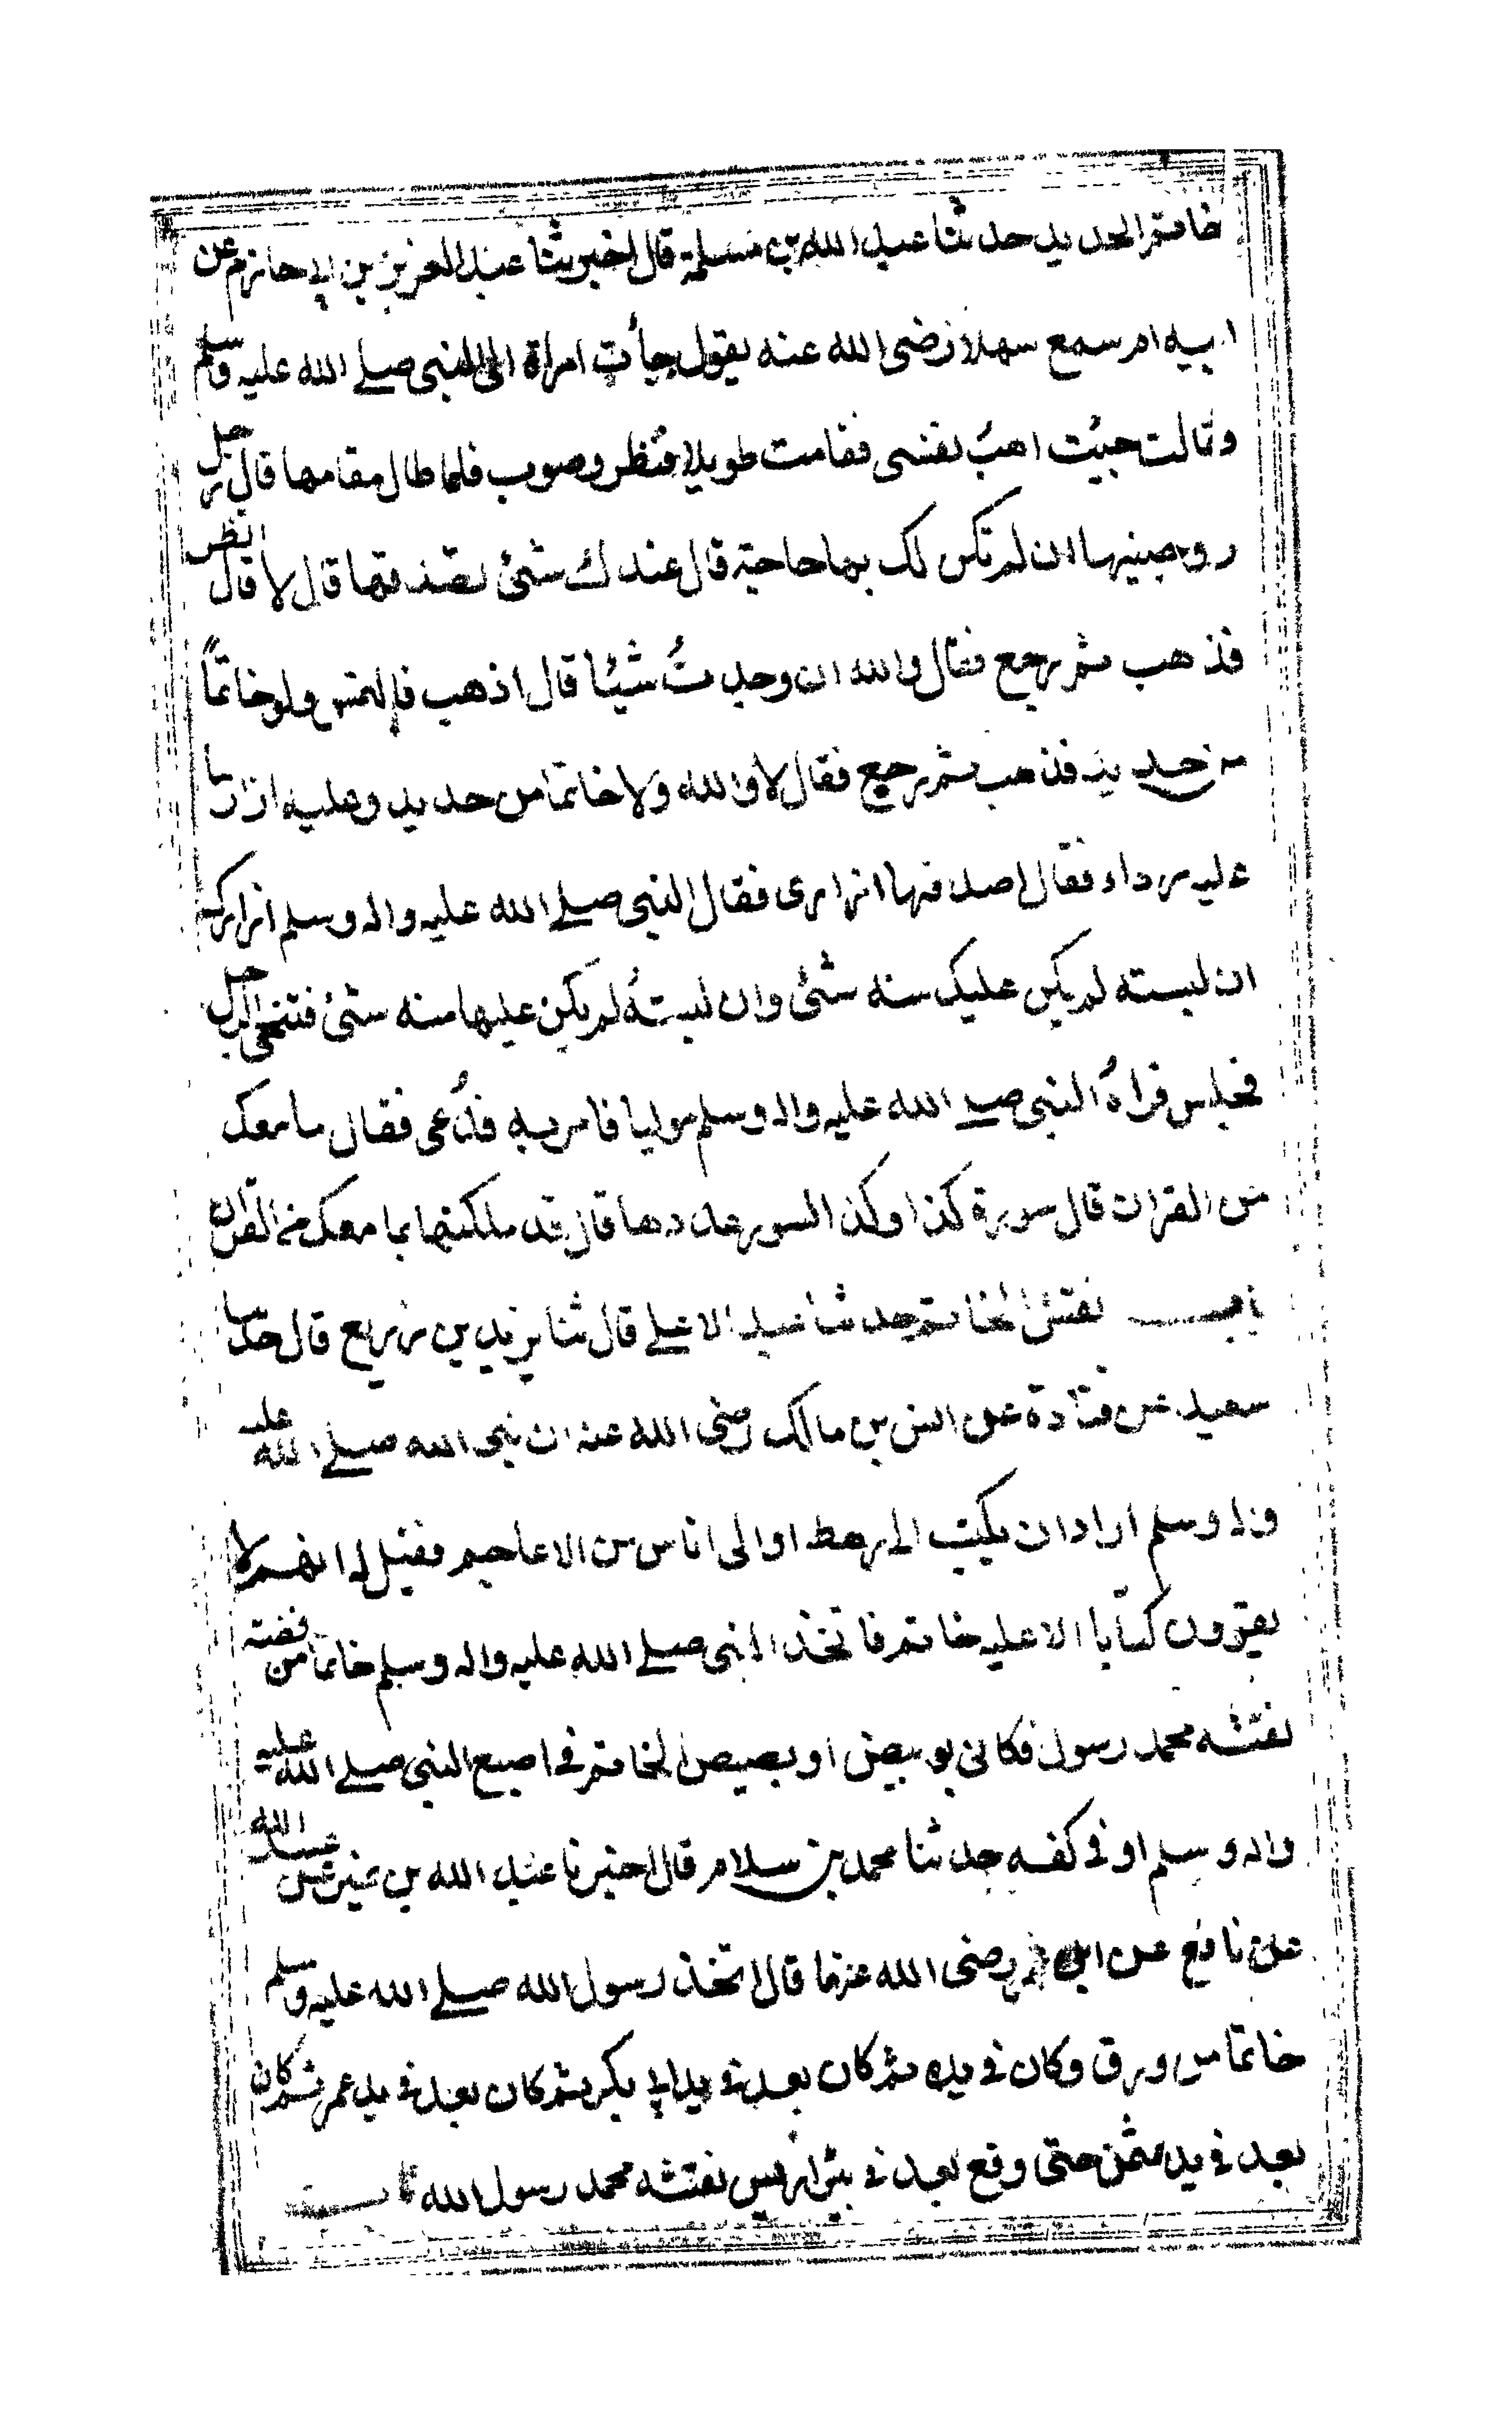 خاتم الحديد حدثنا عبد الله بن مسلمة قال اخبرنا عبد العزيز بن ابي حازم عن
ابيه ام سمع سهلا رضى الله عنه يقول جأت امراة الى النبى صلے الله عليه وسلم
وقالت جيئت اهب نفسى فقامت طويلا فنظر وصوب فلما طال مقامها قال رجل
زوجنيها ان لم تكن لك بها حاجة قال عندك شئ تصدقها قال لا قال انظر
فذهب ثم رجع فقال والله ان وجدتُ شيئا قال اذهب فالتمس ولو خاتماً
من حديد فذهب ثم رجع فقال لا والله ولا خاتما من حديد وعليه ازار ما
عليه رداء فقال اصدقها ازارى فقال النبى صلے الله عليه واله وسلم ازارك
ان لبسته لم يكن عليك منه شئ وان لبسته لم يكن عليها منه شئ فتنحى الرجل
فجلس فراهُ النبى صلے الله عليه واله وسلم موليا فامر به فدُعى فقال ما معك
من القران قال سورة كذا وكذا السور عددها قال قد ملكتها بما معك من القران
باب نقش الخاتم حدثنا عبد الاعلے قال ثنا يزيد بن زريع قال حدثنا
سعيد عن قتادة عن انس بن مالك رضى الله عنه ان نبى الله صلے الله عليه
واله وسلم اراد ان يكتب الى رهط او الى اناس من الاعاجيم فقيل له انهم لا
يقرون كتابا الا عليه خاتم فاتخذ النبى صلے الله عليه واله وسلم خاتما من فضة
نقشه محمد رسول فكانى بوبيض او بصيص الخاتم فى اصبع النبى صلے الله عليه
واله وسلم او فى كفه حدثنا محمد بن سلام قال اخبرنا عبد الله بن نمير عن عبيد الله
عن نافع عن ابن عمر رضى الله عنهما قال اتخذ رسول الله صلے الله عليه وسلم
خاتما من ورق وكان فى يده ثم كان بعد فى يد ابى بكر ثم كان بعد فى يد عمر ثم كان
بعد فى يد عثمن حتى وقع بعد فى بئر اريس نقشه محمد رسول الله باب